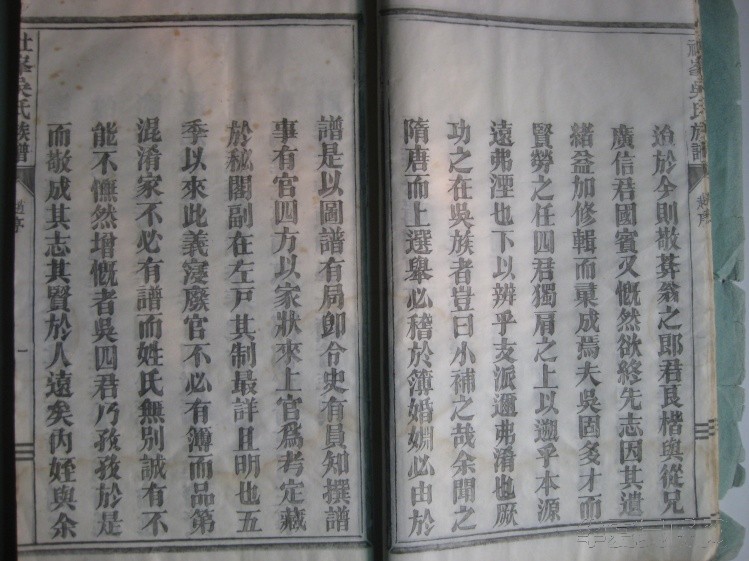 迨於今則敬葊翁之郎君良楷與從兄
廣信君國賓又慨然欲終先志因其遺
緒益加修輯而彙成焉夫吳固多才而
賢勞之任四君獨肩之上以遡乎本源
遠弗湮也下以辨乎支派邇弗淆也厥
功之在吳族者豈曰小補之哉余聞之
隋唐而上選舉必稽於簿婚姻必由於
譜是以圖譜有局卽令史有員知撰譜
事有官四方以家狀來上官爲考定藏
於秘閣副在左戸其制最詳且明也五
季以來此義寖廢官不必有簿而品第
混淆家不必有譜而姓氏無別誠有不
能不憮然增慨者吳四君乃孜孜於是
而敬成其志其賢於人遠矣內姪與余
峯吳氏族譜
趙序
一